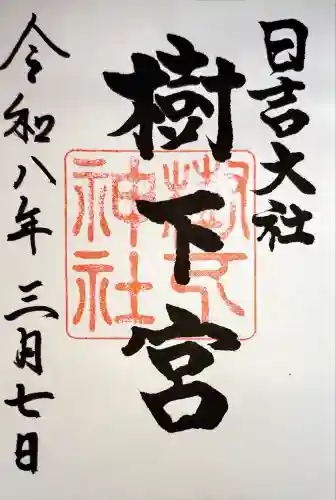 日吉大社
樹下宮
樹下神社
令和八年 三月七日